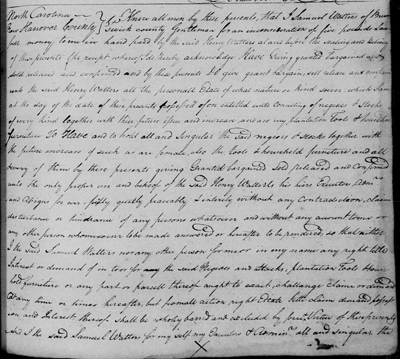 North Carolina Know all men by these presents, that I Samuel Watters of Bruns
New Hanover County wick county Gentleman for an in consideration of five pounds law
full money to me in hand paid by the said Henry Watters at and before the sealing and delivery
of this presents the receipt whereof I do hereby acknowledge Have Given granted bargained and
sold released and confirmed and by this presents do give grant bargain, sell release and confirm
unto the said Henry Watters all the personall Estate of what nature or kind soever which I am
at the day of the date of these presents possessed of or entitled unto consisting of negroes & Stocks
of every kind together with their future Issue and increase and as my plantation Tools & household
furniture To Have and to hold all and Singular the said negroes & Stocks together with
the future increase of such as are female, also the Tools & household furniture and all
every of them by these presents giving Granted bargained Sold released and Confirmed
unto the only proper use and behoof of the said Henry Watters his heirs Executors Adm
and assigns for ever freely quietly peaceably & entirely without any Contradiction, claim
disturbance or hindrance of any persons whatsoever and without any account to me or
any other person whomsoever to be made answered or hereafter to be rendered, so that neither
I the said Samuel Watters nor any other person for me or in my name any right title
Interest or demand of in to or for any the said Negroes and stocks, plantation Tools & house
hold furniture or any part or parcell thereof ought to exact, challange Claim or demand
at any time or times hereafter, but from all action right estate title claim demand possess
ion and Interest thereof Shall be wholy barrd and excluded by virtue of these presents
And I the said Samuel Watters for my self my Executors & Admin all and singular the